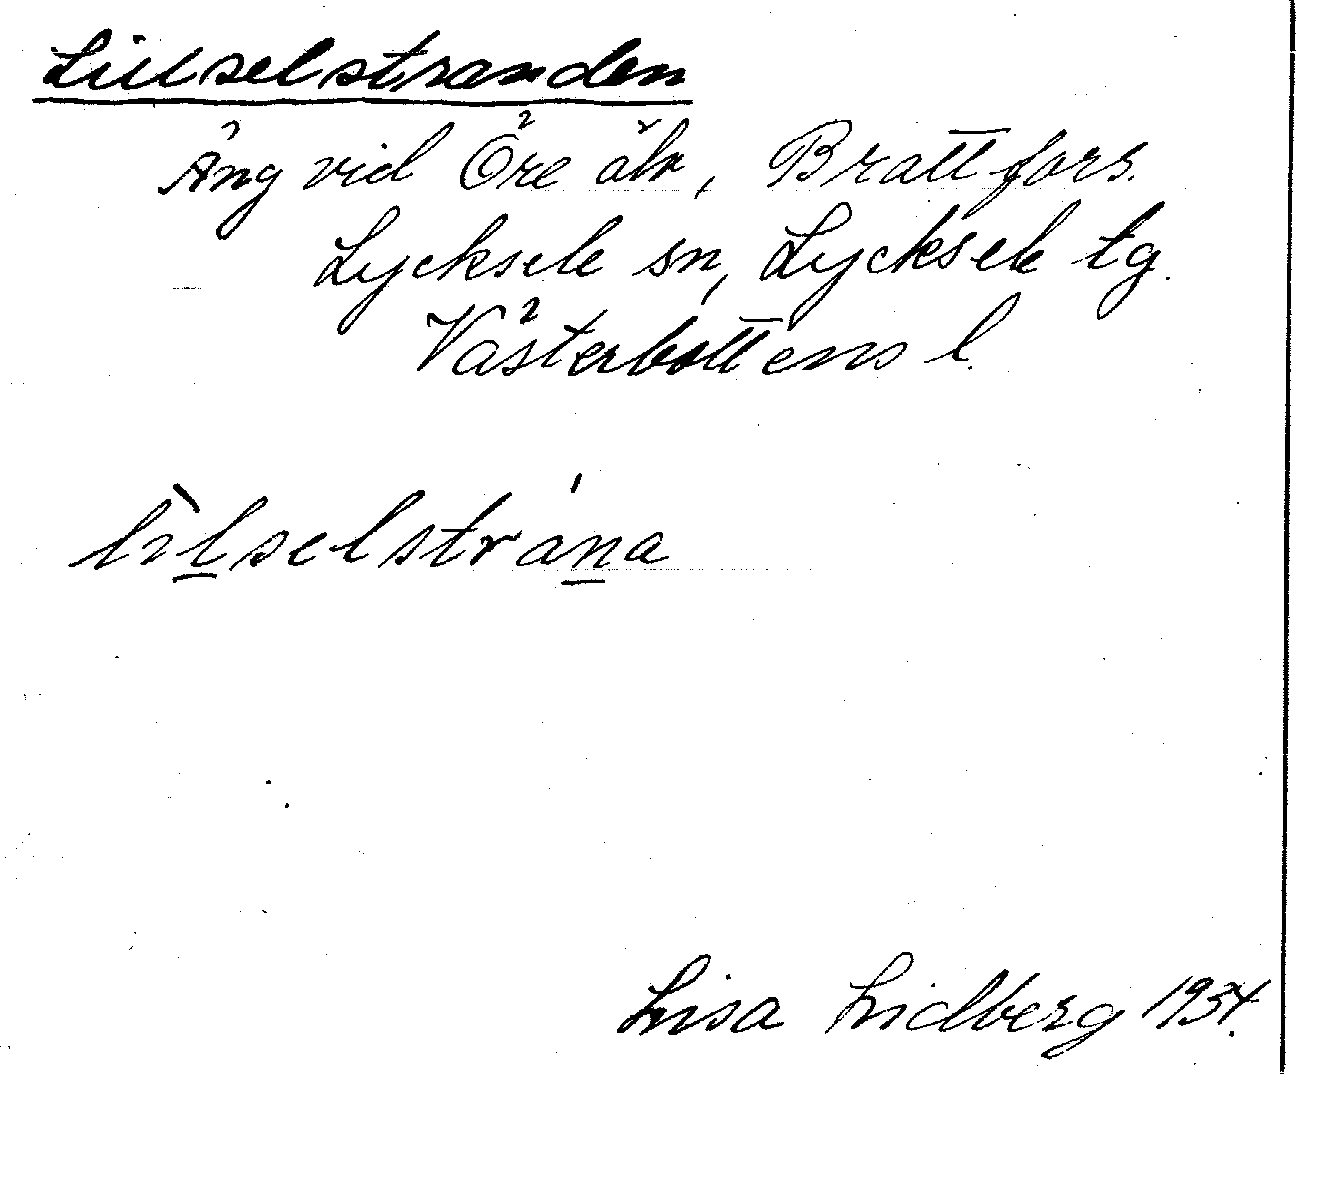 Lillselstranden
Äng vid Öre älv, Brattfors.
Lycksele sn, Lycksele tg.
Västerbottens l.
Lisa Lidberg 1934.